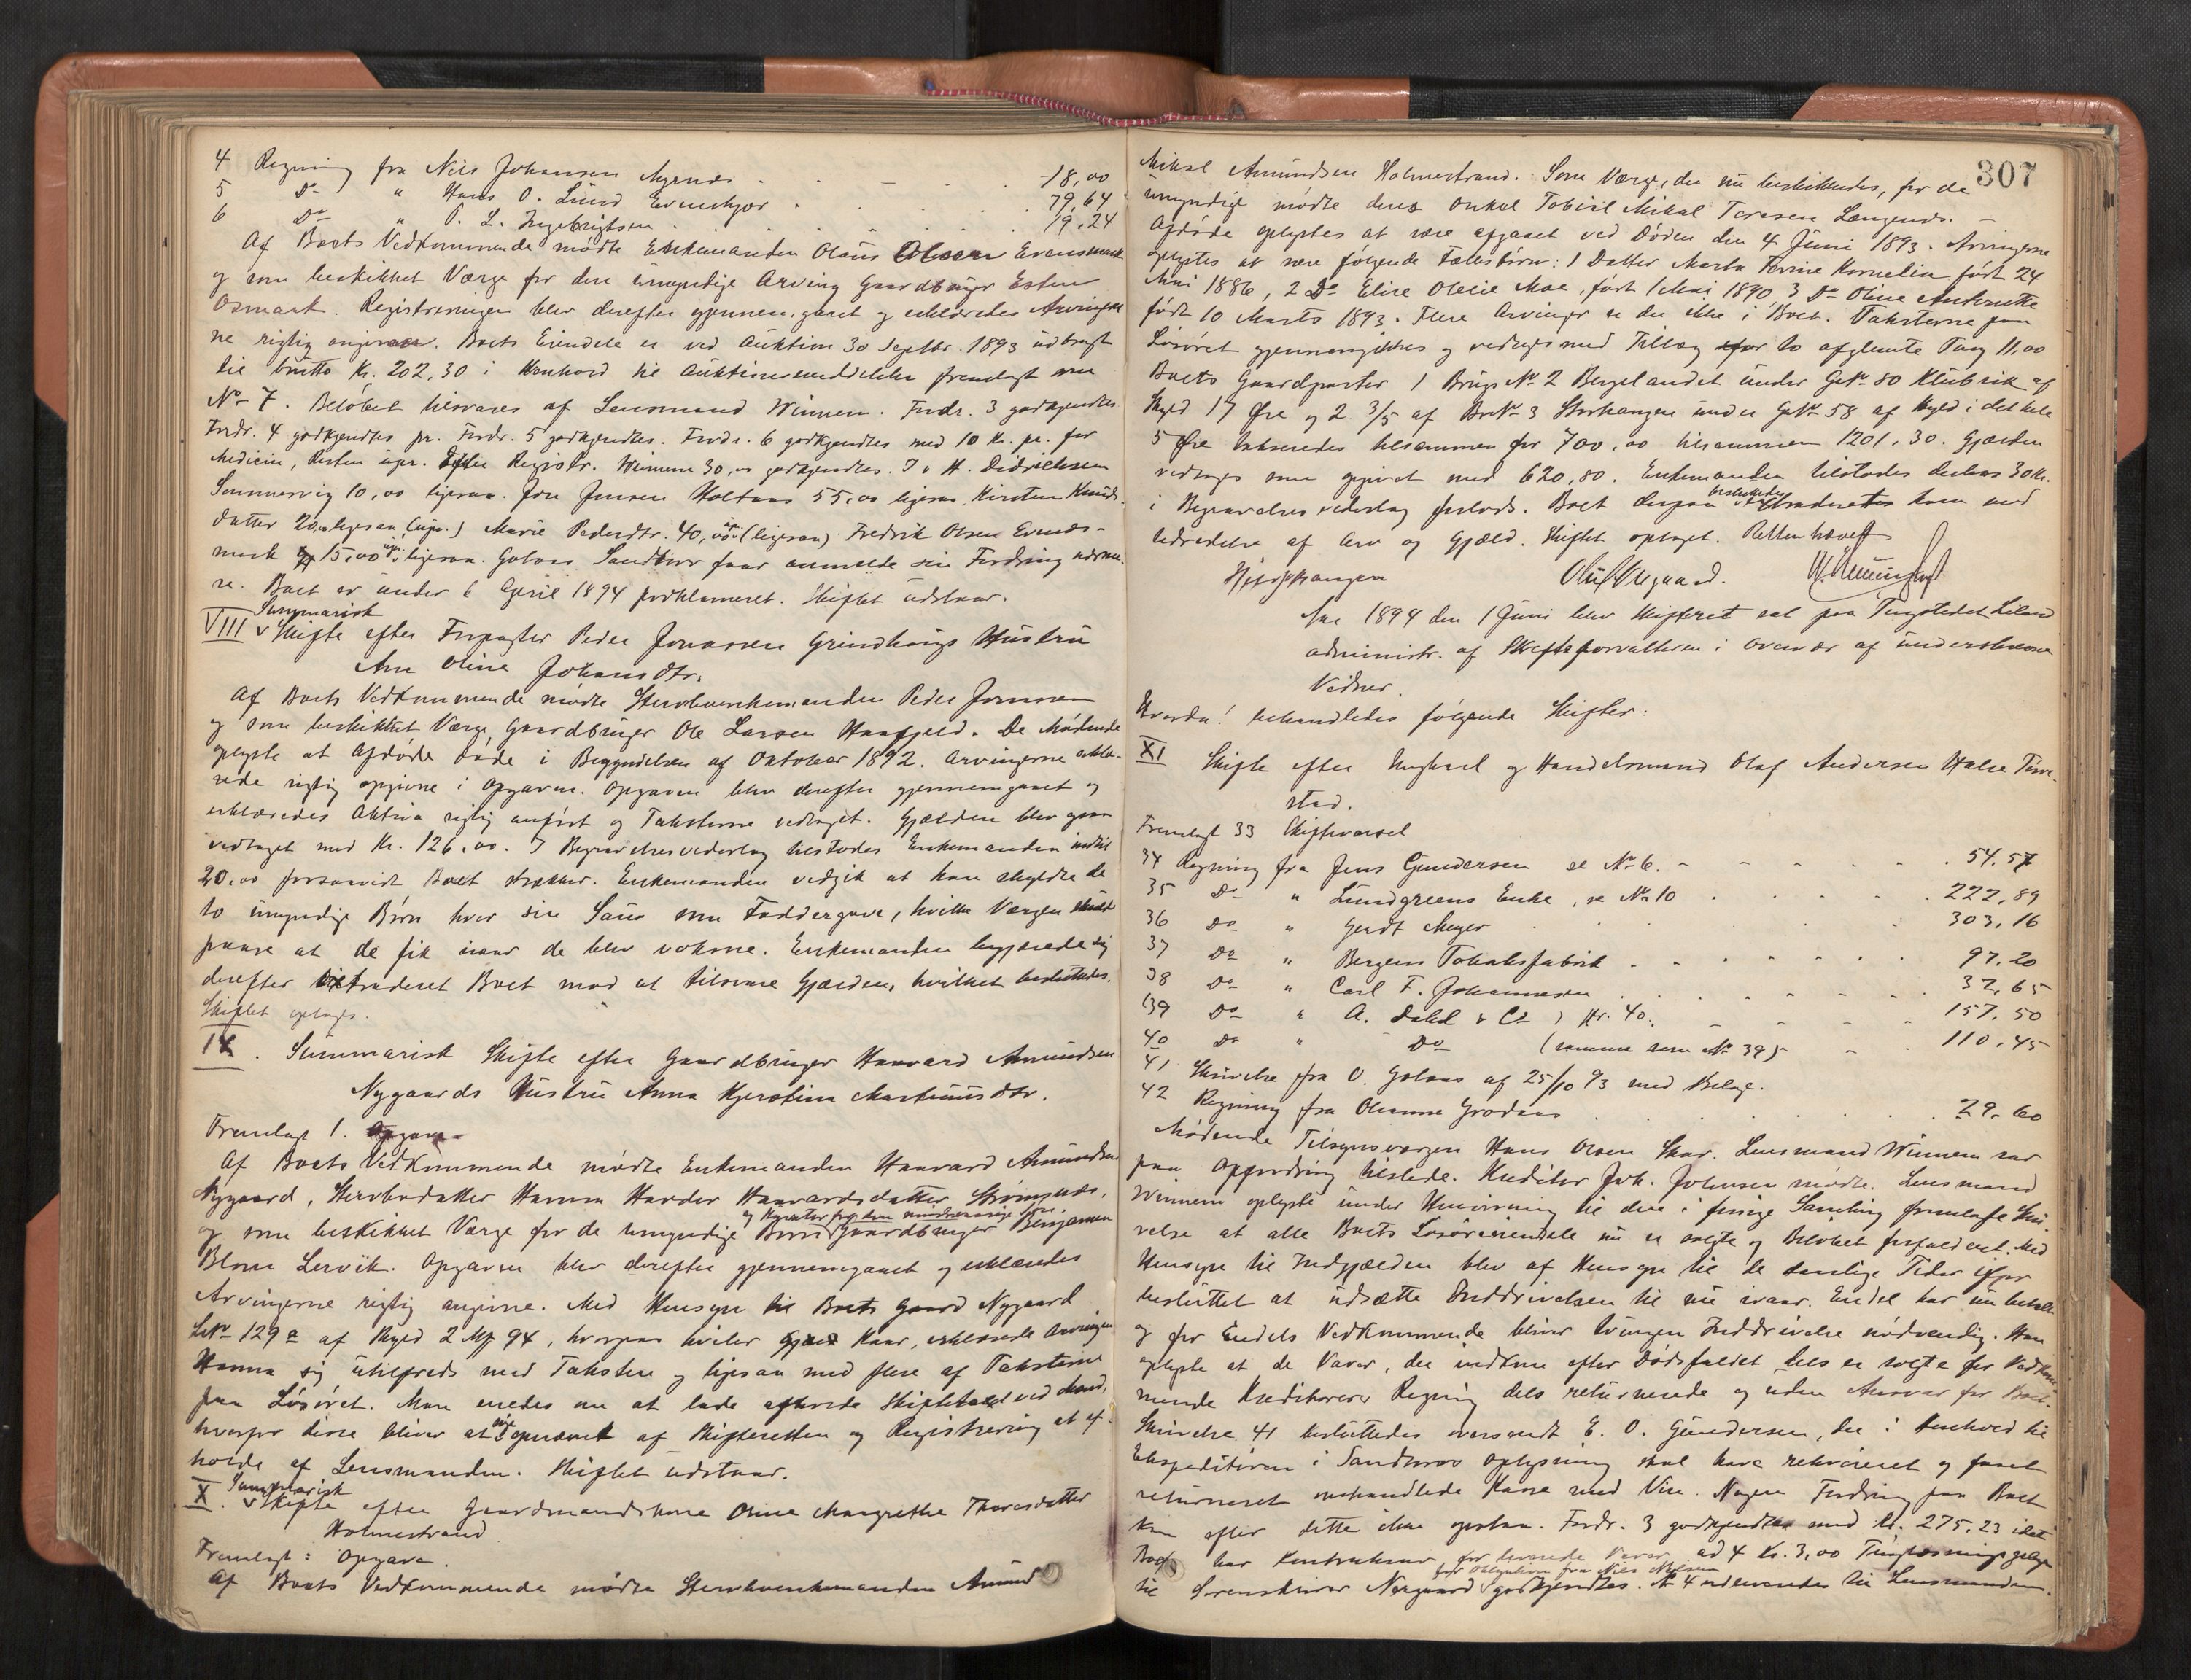 4 Regning fra Nils Johansen Myrnes . . . . 18,00
5 Do " Hans O. Lund Evenskjær . . . 79,64
6 Do " O. L. Ingebrigtsen . . . . 19,24
Af Boets Vedkommende mødte Enkemanden Olaus Olsen Evensmark
og som beskikket Værge for den umyndige Arving Gaardbruger Esten
Osmark. Registreringen blev derefter gjennemgaaet og erkleredes Arvinger-
ne rigtig angivne. Boets Eiendele er ved Auktion 30 Septbr. 1893 udbragt
til brutto Kr. 202,30 i Henhold til Auktionsmeddelelse fremlagt som
No 7. Beløbet tilsvares af Lensmand Winnem. Fordr. 3 godkjendtes
Fordr. 4 godkjendtes pr. Fordr. 5 godkjendtes. Fordr. 6 godkjendtes med 10 Kr. pr. for
Medicin, Resten upr. Efter Registr. Winnem 30,00 godkjendtes. J. H. Didrichsen
Sommervig 10,00 ligesaa. Jon Jensen Holtaas 55,00 ligesaa. Kirsten Knuds-
datter 20,00 ligesaa (upr.) Marie Pedersdtr. 40,00 upr. (ligesaa) Fredrik Olsen Evenes-
mark 15,00 upr. ligesaa. Golaas Sandtorv faar anmelde sin Fordring nærme-
re. Boet er under 6 April 1894 proklameret. Skiftet udstaar.
VIII Summarisk Skifte efter Forpagter Peder Jonassen Grindhaugs Hustru
Ane Oline Johansdtr.
Af Boets Vedkommende mødte Stervboenkemanden Peder Jonassen
og som beskikket Værge, Gaardbruger Ole Larsen Haafjeld. De Mødende
oplyste at Afdøde døde i Begyndelsen af Oktober 1892. Arvingerne erklæ-
rede rigtig opgivne i Opgaven. Opgaven blev derefter gjennemgaaet og
erklæredes Aktiva rigtig anført og Taksterne vedtaget. Gjælden blev ogsaa
vedtaget med Kr. 126,00. I Begravelsesvederlag tilstodes Enkemanden indtil
20,00 forsaavidt Boet strækker. Enkemanden vedgik at han skyldte de
to umyndige Børn hver sin Sau som Faddergave, hvilke Værgen skulde
paase at de fik naar de blev voksne. Enkemanden begjærede sig
derefter extraderet Boet mod at tilsvare Gjælden, hvilket besluttedes.
Skiftet optages.
IX. Summarisk Skifte efter Gaardbruger Haavard Amundsen
Nygaards Hustru Anna Kjerstina Martinusdtr.
Fremlagt 1. Opgave
Af Boets Vedkommende mødte Enkemanden Haavard Amundsen
Nygaard, Stervbodatter Hanna Haavardsdatter
og Kurator for den mindreaarige
og som beskikket Værge for de umyndige Børn Gaardbruger Benjamin
Blom Lervik. Opgaven blev derefter gjennemgaaet og erklæredes
Arvingerne rigtig angivne. Med Hensyn til Boets Gaard Nygaard
LNo 129a af Skyld 2 Mk 94, hvorpaa hviler Kaar, erklærede Arvingen
Hanna sig utilfreds med Taksten og ligesaa med flere af Taksterne
paa Løsøret. Man enedes om at lade afholde Skiftetaxt ved Mænd,
hvorfor disse bliver at opnævnt af Skifteretten og Registrering at af-
holde af Lensmanden. Skiftet udstaar.
X. Summarisk Skifte efter Gaardmandskone Oline Margrethe Thoresdatter
Holmestrand
Fremlagt: Opgave.
Af Boets Vedkommende mødte Stervboenkemanden Amund
307
Mikal Amundsen Holmestrand. Som Værge, der nu beskikkedes, for de
umyndige mødte deres Onkel Tobias Mikal Toresen Længenes.
Afdøde oplystes at være afgaaet ved Døden den 4 Juni 1893. Arvingerne
oplystes at være følgende Fællesbørn: 1 Datter Marta Tovine Kornelia født 24
Mai 1886, 2 Do Elise Olelie Moe, født 1 Mai 1890, 3 Do Oline Andrette
født 10 Marts 1893. Flere Arvinger er der ikke i Boet. Taksterne paa
Løsøret gjennemgikkes og vedtoges med Tillæg for to afglemte Ting 11,00
Boets Gaardparter 1 Brugs No 2 Bergelandet under GNo 80 Klubvik af
Skyld 17 Øre og 2 3/5 af BrNo 3 Storhaugen under GNo 58 af Skyld i det hele
5 Øre takseredes tilsammen for 700,00 tilsammen 1201,30. Gjælden
vedtoges som opgivet med 620,80. Enkemanden tilstodes derhos 30 Kr.
i Begravelsesvederlag forlods. Boet derpaa besluttedes extraderet ham mod
Udredelse af Arv og Gjæld. Skiftet optaget. Retten hævet
Oluf Aagaard.
Aar 1894 den 1 Juni blev Skifteret sat paa Tingstedet Liland
administr. af Skifteforvalteren i Overvær af underskrevne
Vidner.
Hvorda! behandledes følgende Skifter:
XI Skifte efter Ungkarl og Handelsmand Olaf Andersen Halse Tove-
stad.
Fremlagt 33 Skiftevarsel
34 Regning fra Jens Gundersen se No 6. . . . . 54,57
35 Do " Lundgreens Enke, se No 10 . . . 222,89
36 Do " Gerdt Meyer . . . 303,16
37 Do " Bergens Tobaksfabrik . . . . 97,20
38 Do " Carl F. Johannesen . . . . 32,65
39 Do " A. Dahl & Co ) Kfr. 40. . . . 157,50
40 Do " Do (samme som No 39) . . 110,45
41 Skrivelse fra O. Golaas af 25/10 93 med Bilage.
42 Regning fra Olianne Grodaas . . . . 29,60
Mødende Tilsynsværgen Hans Olsen Skar. Lensmand Winnem var
paa Opfordring tilstede. Kreditor Joh. Johnsen mødte. Lensmand
Winnem oplyste under Henvisning til den i forrige Samling fremlagte Skri-
velse at alle Boets Løsøreiendele nu er solgte og Beløbet forfaldent. Med
Hensyn til Indgjælden blev af Hensyn til de daarlige Tider ifjor
besluttet at udsætte Inddrivelsen til nu ivaar. Endel har nu betalt
og for Endels Vedkommende bliver tvungen Inddrivelse nødvendig. Han
oplyste at de Varer, der indkom efter Dødsfaldet dels er solgte for Vedkom-
mende Kreditorers Regning dels returnerede og uden Ansvar for Boet.
Skrivelse 41 besluttedes oversendt E. O. Gundersen, der i Henhold til
Ekspeditøren i Sandtorvs Oplysning skal have rekvireret og faaet
returneret omhandlede Kasse med Vin. Nogen Fordring paa Boet
kan efter dette ikke opstaa. Fordr. 3 godkjendtes med Kr. 275,23 idet
Boet har Kontrakrav for leverede Varer, ad 4 Kr. 3,00 Tinglæsningsgebyr
for Obligation fra Nils Nilsen
til Sorenskriver Norgaard godkjendtes. No 4 udleveredes til Lensmanden.